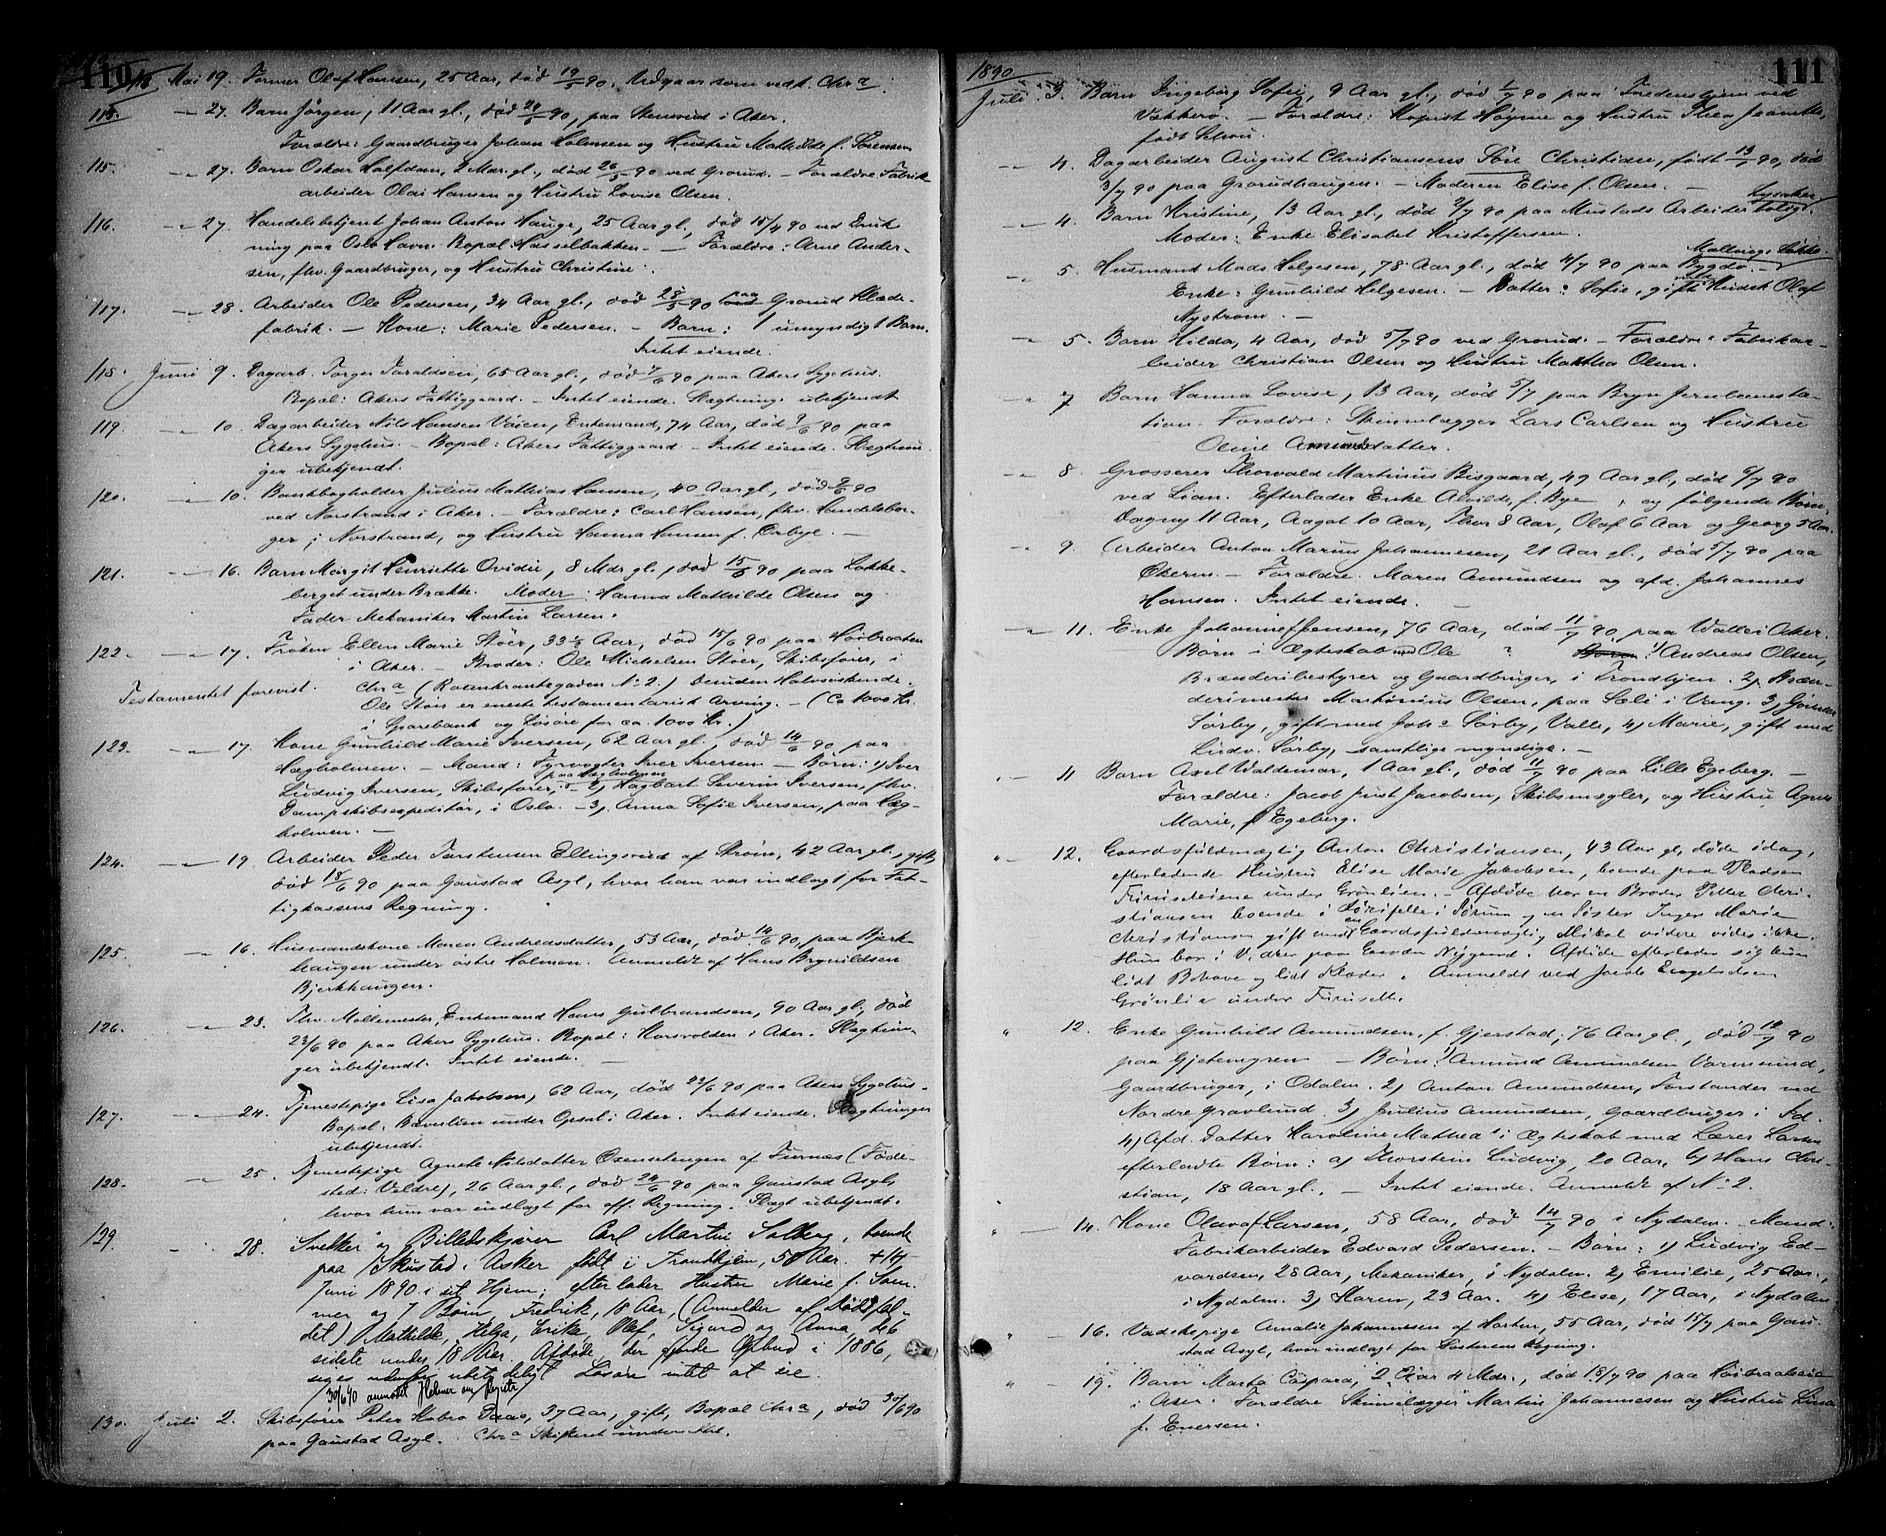 110
Mai 19. Former Olaf Hansen, 25 Aar, død 19/5 90. Udgaar som vedk. Chr.a
113. - 27. Barn Jørgen, 11 Aar gl., død 24/5 90, paa i Aker.
Forældre: Gaardbruger Johan Holmsen og Hustru Mathilde f. Sørensen
115. - 27. Barn Oskar Halfdan, 2 Mdr. gl., død 26/5 90 ved Grorud. - Forældre: Fabrik-
arbeider Olai Hansen og Hustru Lovise Olsen.
116. - 27. Handelsbetjent Johan Anton Hauge, 25 Aar gl., død 15/4 90 ved Druk-
ning paa Oslo Havn. Bopæl Hasselbakken. - Forældre: Arne Ander-
sen, fhv. Gaardbruger, og Hustru Christine.
117. - 28. Arbeider Ole Pedersen, 34 Aar gl., død 28/5 90 paa Grorud Klæde-
fabrik. - Kone: Marie Pedersen. - Børn: 1 umyndigt Barn.
Intet eiende.
118. Juni 9. Dagarb. Torger Taraldsen, 65 Aar gl., død 7/6 90 paa Akers Sygehus.
Bopæl: Akers Fattiggaard. - Intet eiende. Slægtninge ubekjendt
119 - 10. Dagarbeider Nils Hansen Vøien, Enkemand, 74 Aar, død 9/6 90 paa
Akers Sygehus. - Bopæl: Akers Fattiggaard - Intet eiende. Slægtnin-
ger ubekjendt.
120. - 10. Bankbogholder Julius Mathias Hansen, 40 Aar gl., død 90
ved Norstrand i Aker. - Forældre: Carl Hansen, fhv. Handelsbor-
ger i Norstrand, og Hustru Hanna Hansen f. Ørbye. -
121. - 16. Barn Margit Henriette Ovidie, 8 Mdr. gl., død 15/6 90 paa Løkke-
berget under Brække. Moder: Hanna Mathilde Olsen og
Fader Mekaniker Martin Larsen.
122. - 17. Frøken Ellen Marie Støer, 33 1/2 Aar, død 15/6 90 paa Høibraaten
i Aker. - Broder: Ole Michelsen Støer, Skibsfører, i
Testamentet forevist. Chr.a (Rosenkrantzgaden No 2.) Desuden Halvsødskende.
Ole Støer er eneste testamentarisk Arving. - (Ca 1000 Kr.
i Sparebank og Løsøre for ca. 1000 Kr.)
123. - 17. Kone Gunhild Marie Iversen, 62 Aar gl., død 14/6 90 paa
Hægholmen. - Mand: Fyrvogter Iver Iversen - Børn: 1) Iver
paa Hægholmen
Ludvig Iversen, Skibsfører, - 2) Hagbart Severin Iversen, fhv.
Dampskibsexpeditør, i Oslo. - 3) Anna Sofie Iversen, paa Hæg-
holmen. -
124. - 19. Arbeider Peder Torstensen Ellingsrud af Strøm, 42 Aar gl., gift,
død 18/6 90 paa Gaustad Asyl, hvor han var indlagt for Fat-
tigkassens Regning.
125. - 16. Husmandskone Maren Andreasdatter, 53 Aar, død 14/6 90, paa Bjerk-
haugen under østre Holmen. Anmeldt af Hans Brynildsen
Bjerkhaugen.
126. - 23. Fhv. Møllemester, Enkemand Hans Gulbrandsen, 90 Aar gl., død
23/6 90 paa Akers Sygehus. Bopæl: Korsvolden i Aker. Slægtnin-
ger ubekjendt. Intet eiende. -
127. - 24. Tjenestepige Lisa Jakobsen, 62 Aar, død 23/6 90 paa Akers Sygehus.
Bopæl: under Opsal i Aker. Intet eiende. Slægtninger
ubekjendt.
128. - 25. Tjenestepige Agnete Nilsdatter Oxensetengen af Furnes (Føde-
sted: Veldre), 26 Aar gl., død 24/6 90 paa Gaustad Asyl,
hvor hun var indlagt for off. Regning. Slægt ubekjendt.
129. - 28. Snekker og Billedskjærer Carl Martin Solberg, boende
paa Skustad i Asker født i Trondhjem, 58 Aar. + 14
Juni 1890 i sit Hjem; efterlader Hustru Marie f. Som-
mer og 7 Børn, Fredrik, 18 Aar, (Anmelder af Dødsfal-
det) Mathilde, Helga, Erika, Olaf, Sigurd og Anna de 6
sidste under 18 Aar. Afdøde, der gjorde Opbud i 1886,
siges ubetydeligt Løsøre intet at eie.
30/6 90 anmeldt
130. Juli 2. Skibsfører Peter Isaac, 37 Aar, gift, Bopæl Chr.a, død 30/6 90
paa Gaustad Asyl. Chr.a Skifteret underrettet.
1890 111
Juli 3. Barn Ingeborg Sofei, 9 Aar gl., død 1/7 90 paa Fredensheim ved
Vækkerø. - Forældre: Kopist Høyme og Hustru Thea Jeanette,
født Schou.
- 4. Dagarbeider August Christiansens Søn Christian, født 13/ 90, død
3/7 90 paa Grorudhaugen. - Moderen Elise f. Olsen. -
Lysaker
- 4. Barn Kristine, 13 Aar gl., død 2/7 90 paa Mustads Arbeiderbolig.
Moder: Enke Elisabet Kristoffersen.
- 5. Husmand Mads Helgesen, 78 Aar gl., død 4/7 90 paa Bygdø.
Enke: Gunhild Helgesen. - Datter: Sofie, gift med Olaf
Nystrøm. -
- 5. Barn Hilda, 4 Aar, død 5/7 90 ved Grorud. - Forældre: Fabrikar-
beider Christian Olsen og Hustru Mathea Olsen.
- 7. Barn Hanna Lovise, 13 Aar, død 5/7 paa Bryn Jernbanesta-
tion. Forældre: Skinnelægger Lars Carlsen og Hustru
Oline Amundsdatter.
- 8. Grosserer Thorvald Martinius Bisgaard, 49 Aar gl., død 6/7 90
ved Lian. Efterlader Enke Alvilde, f. Bye, og følgende Børn:
Dagny 11 Aar, Aagot 10 Aar, Thor 8 Aar, Olaf 6 Aar og Georg 5 Aar.
- 9. Arbeider Anton Marius Johannesen, 21 Aar gl., død 5/7 90 paa
Økern. - Forældre: Maren Amundsen og afd. Johannes
Hansen. Intet eiende. -
- 11. Enke Johanne Jensen, 76 Aar, død 11/7 90, paa Valle i Aker.
Børn i Ægteskab med Ole ? 1) Andreas Olsen,
Brænderibestyrer og Gaardbruger, i Trondhjem. 2) Bræn-
derimester Martinius Olsen, paa Sæli i Vang. 3)
Sørby, gift med Joh.s Sørby, Valle, 4) Marie, gift med
Ludv. Sørby, samtlige myndige. -
- 11. Barn Axel Valdemar, 1 Aar gl., død 11/7 90 paa Lille Egeberg. -
Forældre: Jacob Just Jacobsen, Skibsmægler, og Hustru Agnes
Marie, f. Egeberg.
- 12. Gaardsfuldmægtig Anton Christiansen, 43 Aar gl, døde idag,
efterladende Hustru Elise Marie Jakobsen, boende paa Pladsen
Furuseteiene under Grønlien. - Afdøde har en Broder Petter Chri-
stiansen boende i i Sørum og en Søster Inger Marie
Christiansen gift med en Gaardsfuldmægtig Mikal videre vides ikke.
Hun bor i V. Aker paa Gaarden Nygaard. Afdøde efterlader sig kun
lidt Bohave og lidt Klæder. Anmeldt ved Jacob Engebretsen
Grønlie under Furuseth.
- 12. Enke Gunhild Amundsen, f. Gjerstad, 76 Aar gl., død 12/7 90
paa Gjetemyren - Børn: 1) Amund Amundsen Vormsund,
Gaardbruger, i Odalen. 2) Anton Amundsen, Forstander ved
Nordre Gravlund. 3) Julius Amundsen, Gaardbruger i
4) Afd. Datter Karoline Mathea's i Ægteskab med Lærer Larsen
efterladte Børn: a) Thorstein Ludvig, 20 Aar, b) Hans Chri-
stian, 18 Aar gl. - Intet eiende. Anmeldt af No 2.
- 14. Kone Olava Larsen, 58 Aar, død 14/7 90 i Nydalen. Mand:
Fabrikarbeider Edvard Pedersen. - Børn: 1) Ludvig Ed-
vardsen, 28 Aar, Mekaniker, i Nydalen. 2) Emilie, 25 Aar,
i Nydalen. 3) Karen, 23 Aar. 4) Elise, 17 Aar, i Nydalen.
- 16. Vaskepige Amalie Johannesen af Horten, 55 Aar, død 15/7 paa Gau-
stad Asyl, hvor indlagt for Søsterens Regning.
- 19. Barn Marta Caspara, 2 Aar 4 Mdr., død 18/7 90 paa Høibraaten
i Aker. Forældre Skinnelægger Martin Johannesen og Hustru Lina
f. Enersen.